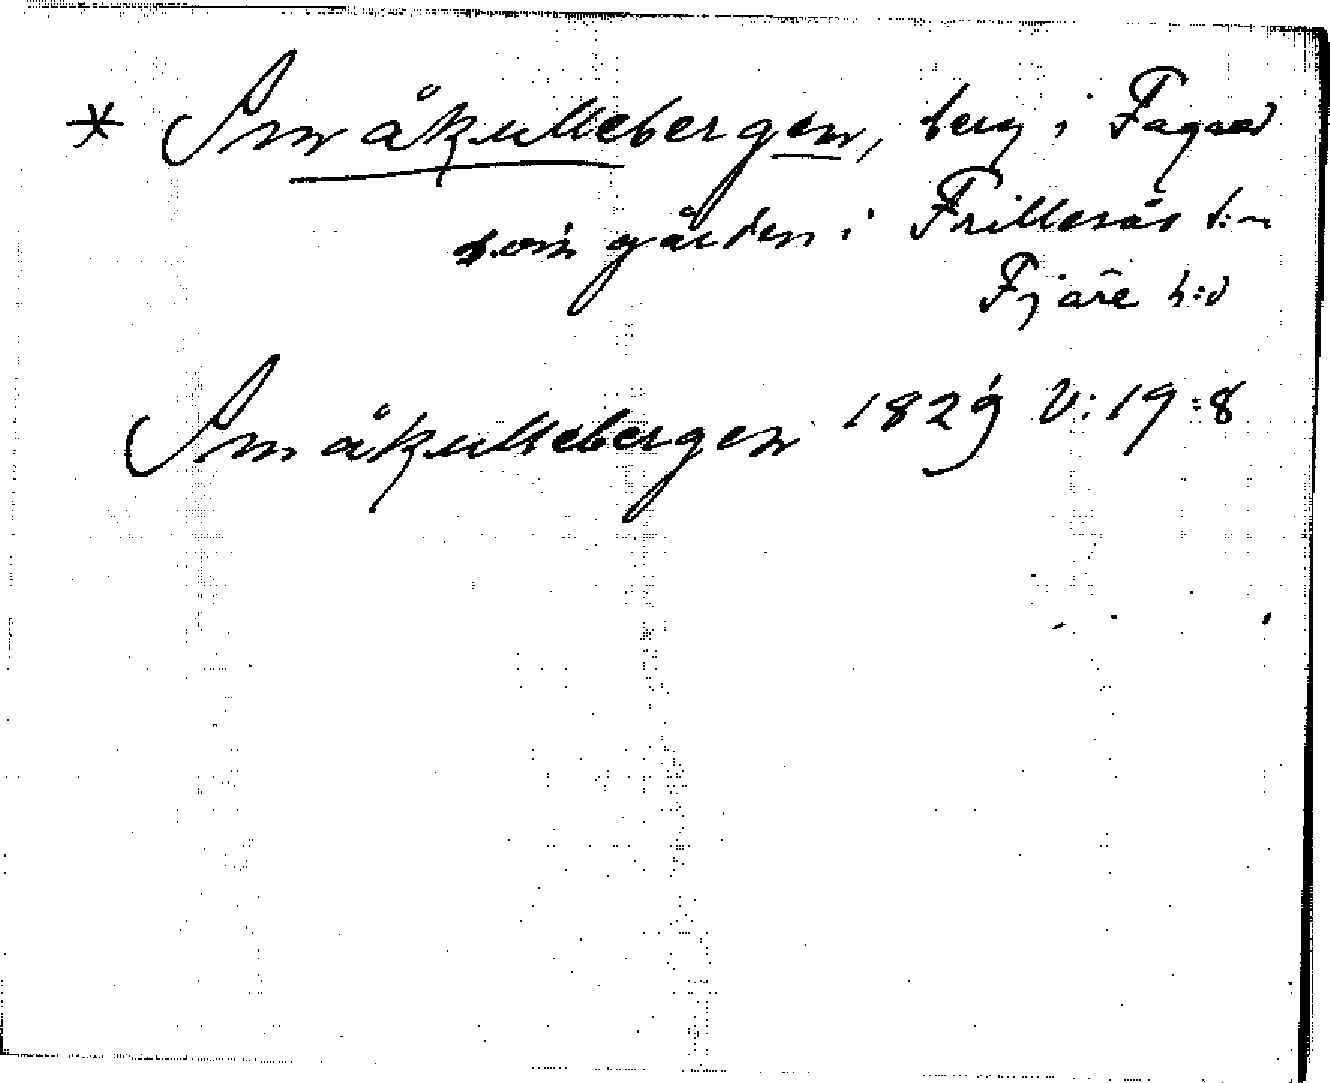 * Småkullebergen, berg i Fagared
gården i Frillesås s:n
Fjäre h:d
Småkullebergen 1829 V:19:8